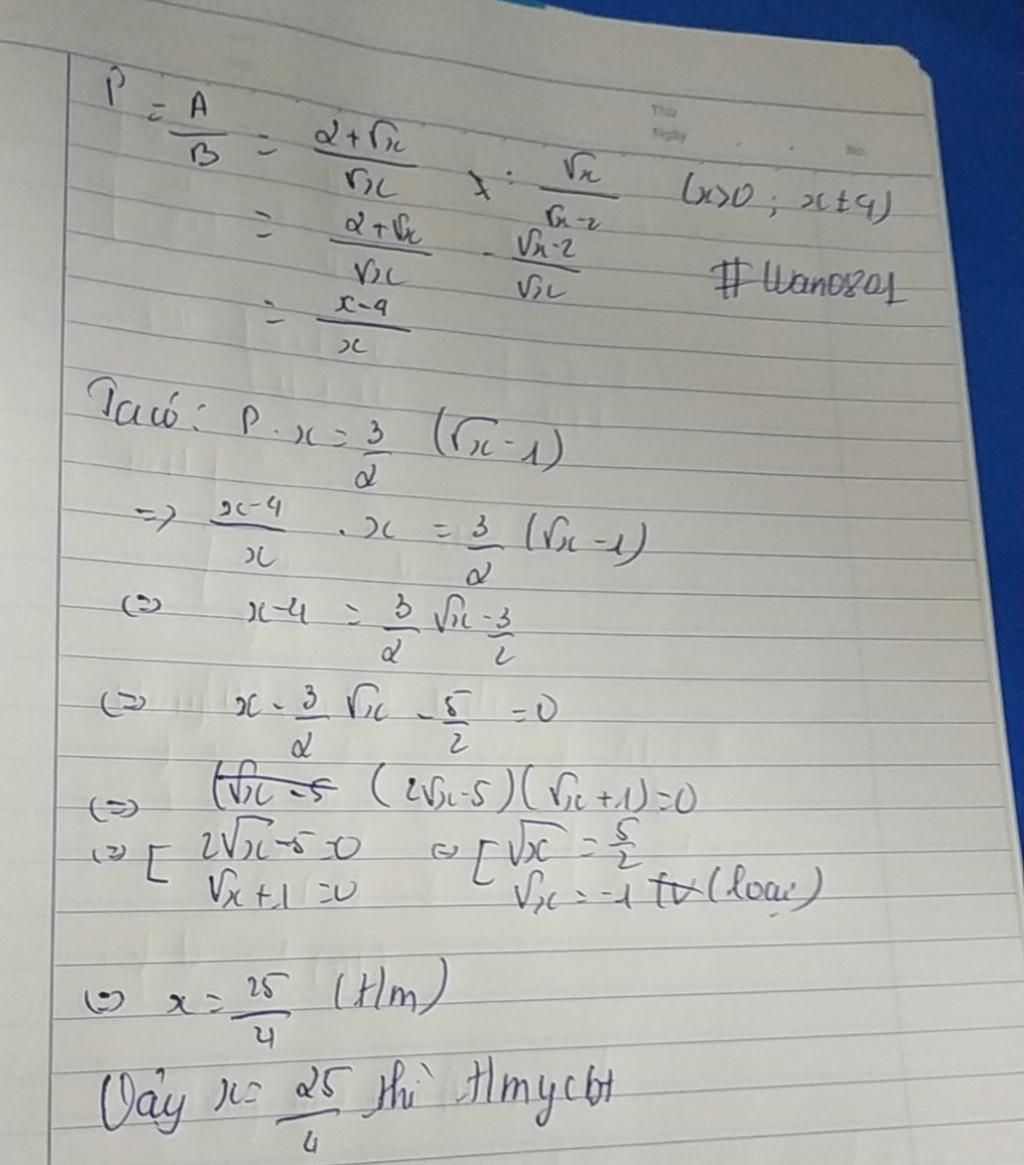 Thứ
Ngày . . No
P = A/B = (2+√x)/√x : √x/(√x-2) (x>0; x≠4)
= (2+√x)/√x · (√x-2)/√x #Wano801
= (x-4)/x
Ta có: P.x = 3/2 (√x-1)
=> (x-4)/x . x = 3/2 (√x-1)
(=) x-4 = 3/2 √x - 3/2
(=) x - 3/2 √x - 5/2 = 0
(=) (2√x-5)(√x+1)=0
(=) [ 2√x-5=0 (=) [ √x = 5/2
√x+1=0 √x = -1 (loại)
(=) x = 25/4 (t/m)
Vậy x = 25/4 thì t/mycbt